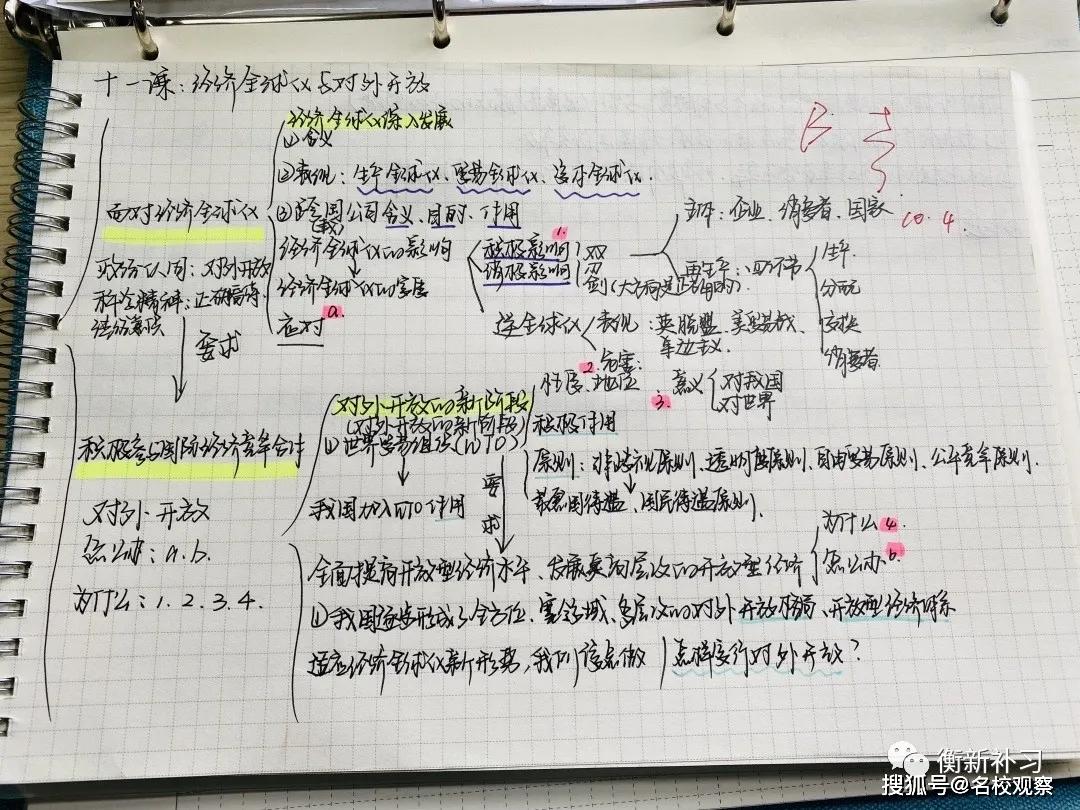 十一课：经济全球化与对外开放
经济全球化深入发展
①含义
②表现：生产全球化、贸易全球化、资本全球化.
面对经济全球化
③跨国公司含义、目的、作用
(载)
主体：企业、消费者、国家
10.4
1.
经济全球化的影响
积极影响
消极影响
双
刃
剑(大方向是正确的).
再生产：四环节
生产
分配
交换
消费者
政治认同：对外开放
科学精神：正确看待
法治意识
经济全球化的发展
应对
a.
逆全球化
表现：英脱盟、美贸易战、
单边主义.
危害：
要求
对外开放的新阶段
(对外开放的新阶段)
性质、地位
2.
3.
意义
对我国
对世界
积极参与国际经济竞争合作
①世界贸易组织(WTO)
积极作用
原则：非歧视原则、透明度原则、自由贸易原则、公平竞争原则.
最惠国待遇、国民待遇原则.
我国加入WTO作用
要
求
对外开放
怎么办：a.b.
为什么：1.2.3.4.
为什么 4.
全面提高开放型经济水平、发展更高层次的开放型经济
怎么办 b.
①我国逐步形成了全方位、宽领域、多层次的对外开放格局、开放型经济体系
适应经济全球化新形势，我们该怎么做
怎样实行对外开放？
衡新补习
搜狐号@名校观察